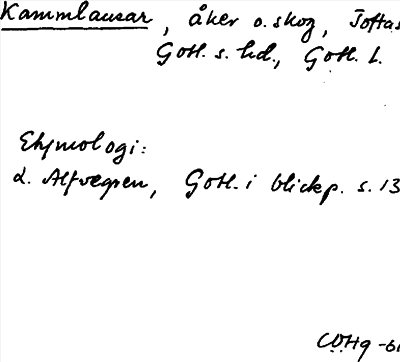 Kammlausar, åker o. skog, Tofta s
Gotl. s. hd., Gotl. l.
Etymologi:
L. Alfvegren, Gotl. i blickp. s. 13